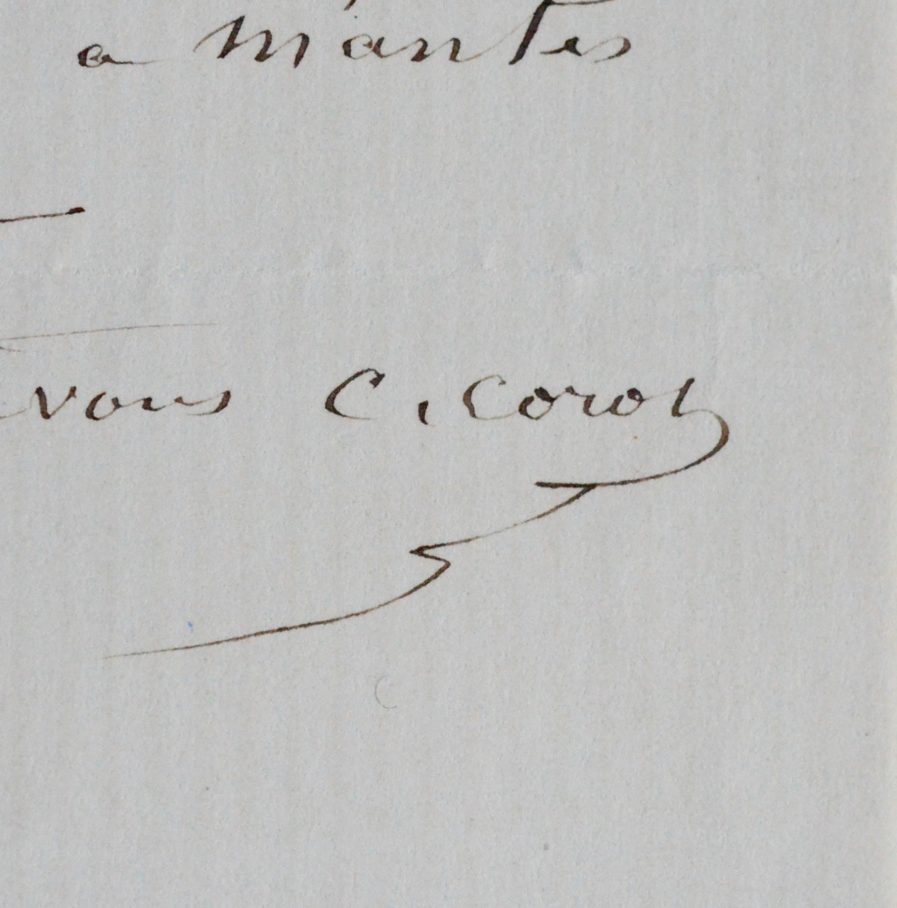 a Mantes
vous C. Corot